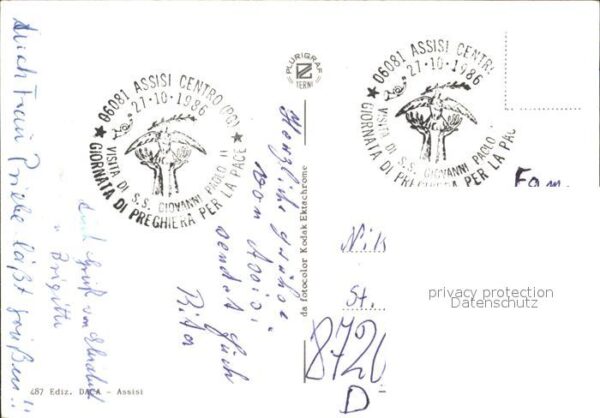 06081 ASSISI CENTRO (PG)
27-10-1986
VISITA DI S.S. GIOVANNI PAOLO II
GIORNATA DI PREGHIERA PER LA PACE
PLURIGRAF
TERNI
06081 ASSISI CENTR
27-10-1986
VISITA DI S.S. GIOVANNI PAOLO
GIORNATA DI PREGHIERA PER LA PAC
Herzliche Grüße
von Assisi
sendet Euch
Rita
Auch Frau läßt grüßen!!
Gruß von
u. Brigitte
da fotocolor Kodak Ektachrome
Fam.
Nik
St.
8720
D
privacy protection
Datenschutz
487 Ediz. DACA - Assisi